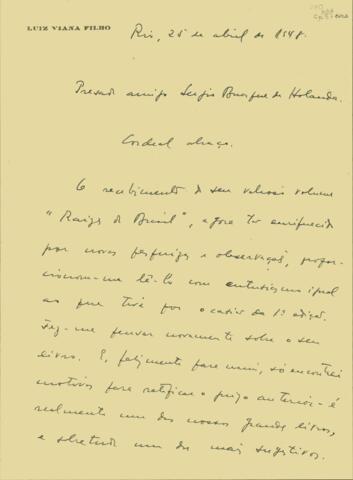 LUIZ VIANA FILHO
Rio, 25 de abril de 1948.
Presado amigo Sergio Buarque de Holanda.
Cordeal abraço.
O recebimento do seu valioso volume
"Raizes do Brasil", agora tão enriquecido
por novas pesquizas e observações, propor-
cionou-me lê-lo com entusiasmo igual
ao que tive por ocasião da 1ª edição.
Fez-me pensar novamente sobre o seu
livro. E, felizmente para mim, só encontrei
motivos para ratificar o juizo anterior - é
realmente um dos nossos grandes livros,
e sobretudo um dos mais sugestivos.